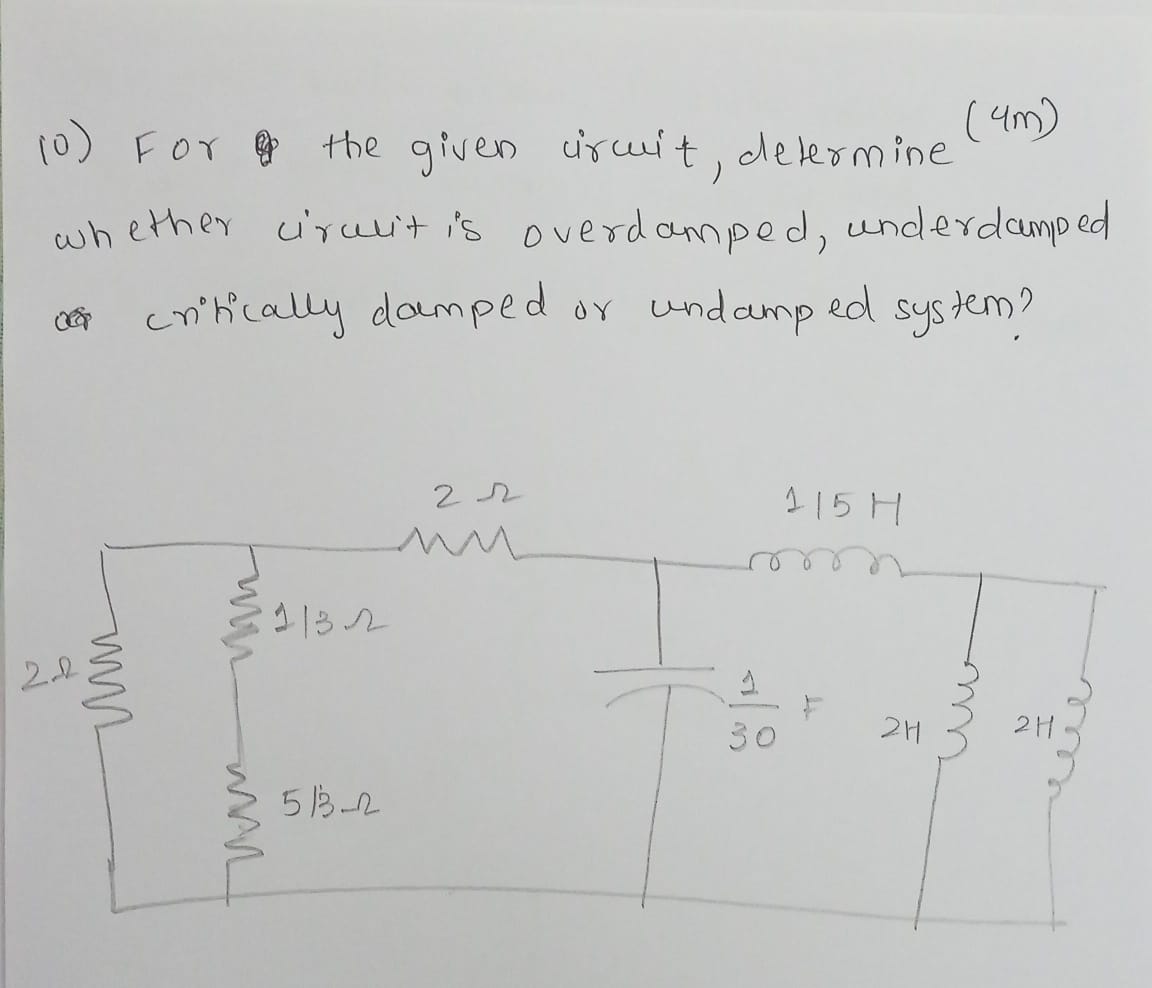 10) For the given circuit, determine (4m)
whether circuit is overdamped, underdamped
critically damped or undamped system?
2 Ω
1/5 H
1/3 Ω
2Ω
1
30 F
2H
2H
5/3 Ω